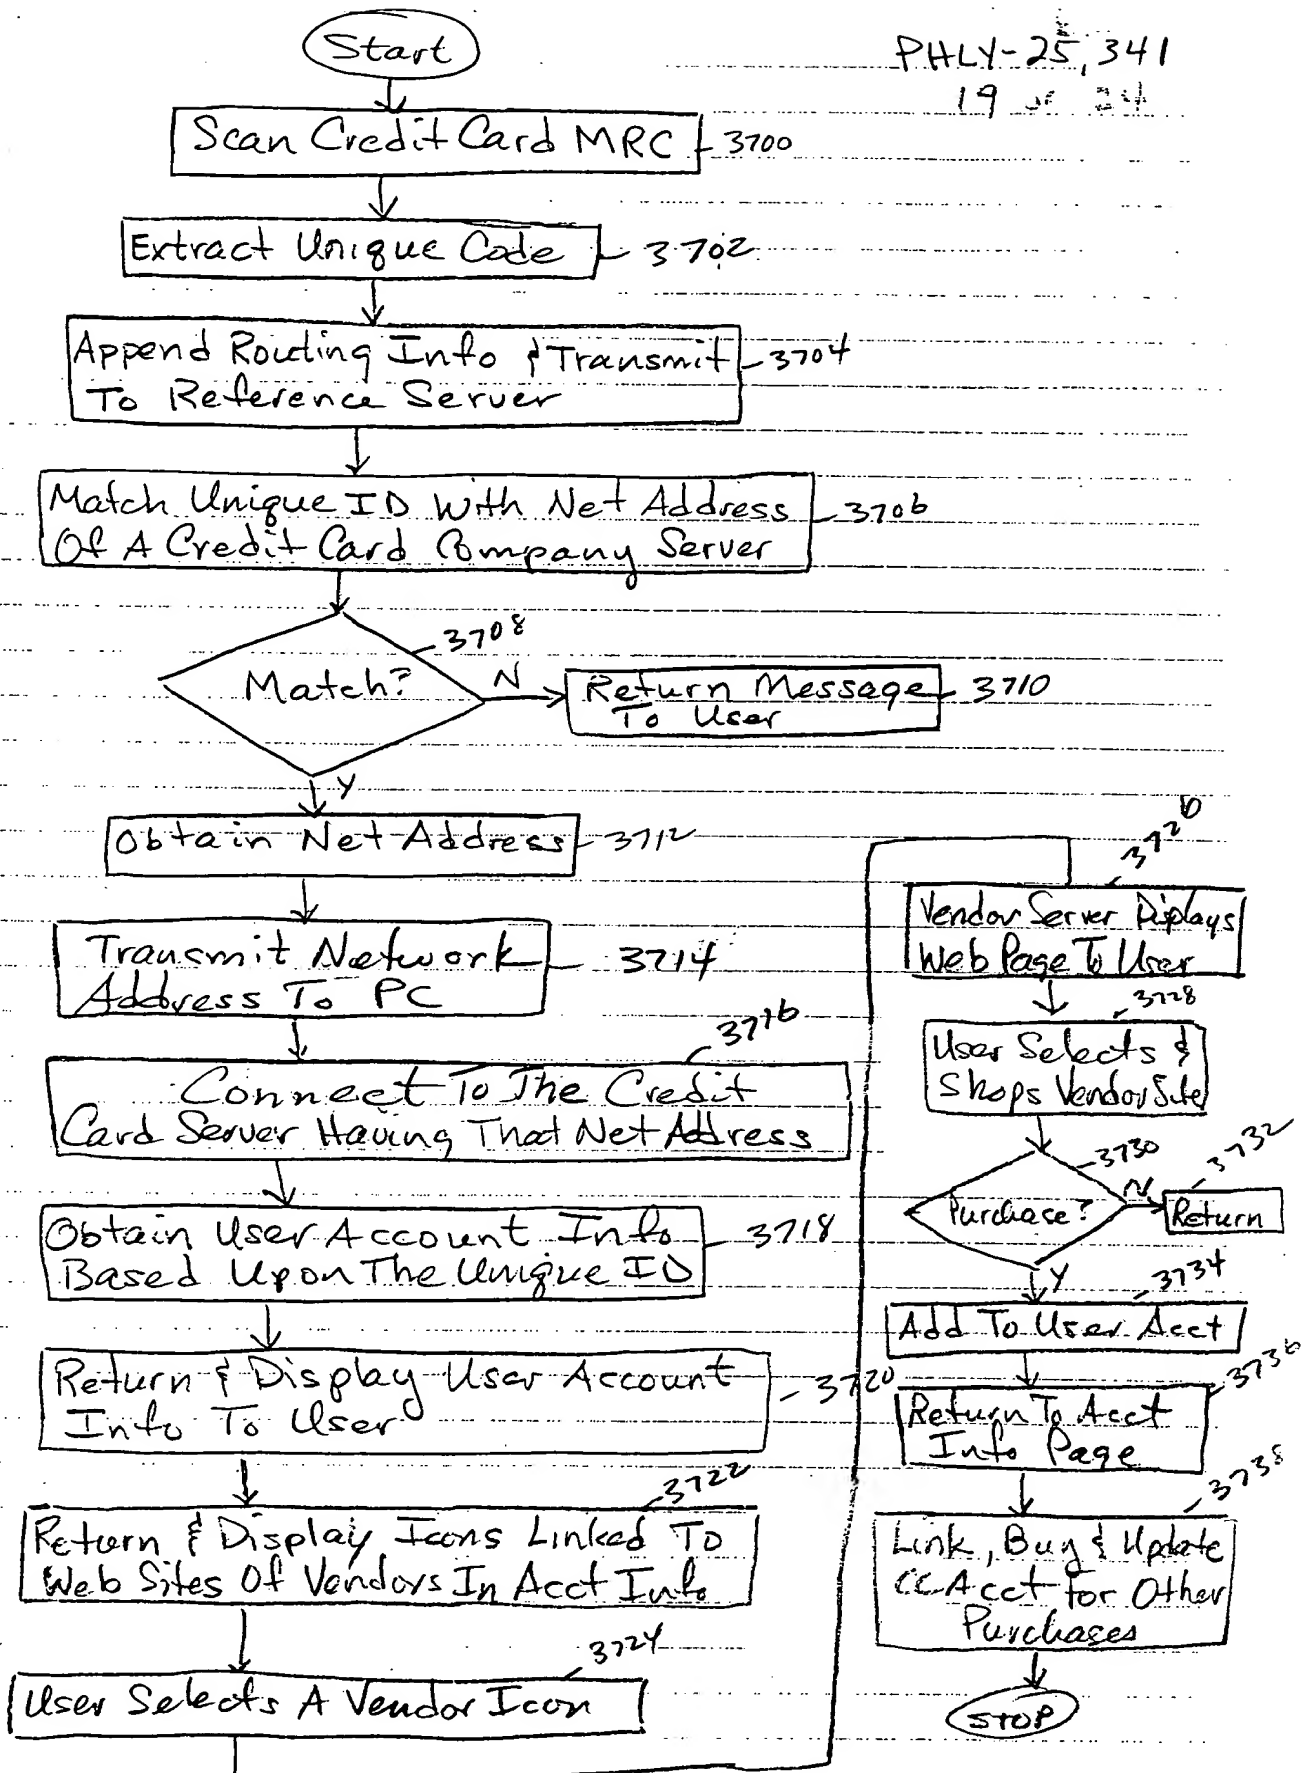 PHLY-25,341
19 of 24
Start
Scan Credit Card MRC
3700
Extract Unique Code
3702
Append Routing Info & Transmit
To Reference Server
3704
Match Unique ID With Net Address
Of A Credit Card Company Server
3706
3708
Match?
N
Return Message
To User
3710
Y
Obtain Net Address
3712
Transmit Network
Address To PC
3714
3716
Connect To The Credit
Card Server Having That Net Address
Obtain User Account Info
Based Upon The Unique ID
3718
Return & Display User Account
Info To User
3720
3722
Return & Display Icons Linked To
Web Sites Of Vendors In Acct Info
3724
User Selects A Vendor Icon
3726
Vendor Server Displays
Web Page To User
3728
User Selects &
Shops Vendor Site
3730
Purchase?
N
3732
Return
Y
3734
Add To User Acct
3736
Return To Acct
Info Page
3738
Link, Buy & Update
CC Acct for Other
Purchases
STOP